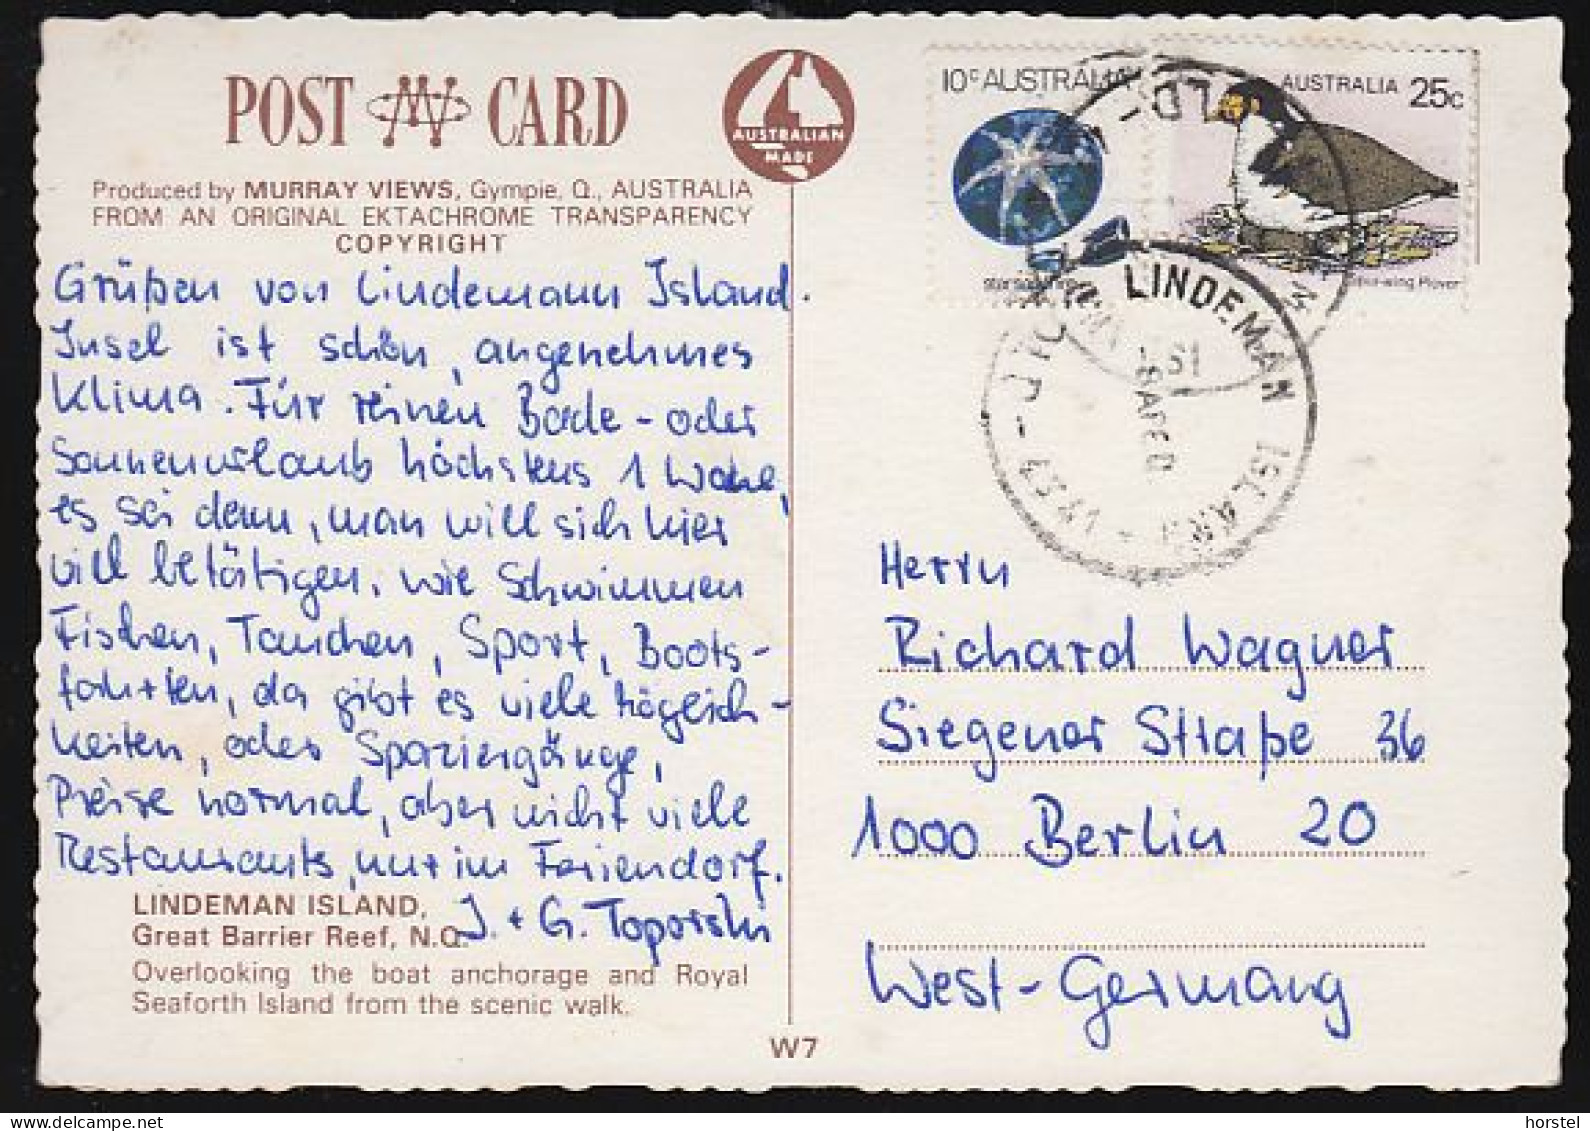 POST CARD
AUSTRALIAN
MADE
Produced by MURRAY VIEWS, Gympie, Q., AUSTRALIA
FROM AN ORIGINAL EKTACHROME TRANSPARENCY
COPYRIGHT
Grüßen von Lindemann Island.
Insel ist schön, angenehmes
Klima. Für reinen Bade- oder
Sonnenurlaub höchstens 1 Woche,
es sei denn, man will sich hier
viel betätigen, wie Schwimmen
Fischen, Tauchen, Sport, Boots-
fahrten, da gibt es viele Möglich-
keiten, oder Spaziergänge,
Preise normal, aber nicht viele
Restaurants, nur im Feriendorf.
J. + G. Toporski
LINDEMAN ISLAND,
Great Barrier Reef, N.Q.
Overlooking the boat anchorage and Royal
Seaforth Island from the scenic walk.
W7
10c AUSTRALIA
AUSTRALIA 25c
-wing Plover
LINDEMAN ISLAND
QLD - 4741
Herrn
Richard Wagner
Siegener Straße 36
1000 Berlin 20
West-Germany
horstel